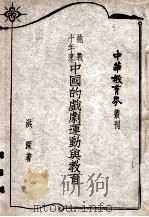 中華教育界叢刊
抗戰十年來中國的戲劇運動與教育
洪深著